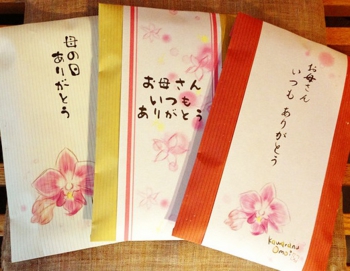 母の日
ありがとう
お母さん
いつも
ありがとう
お母さん
いつも ありがとう